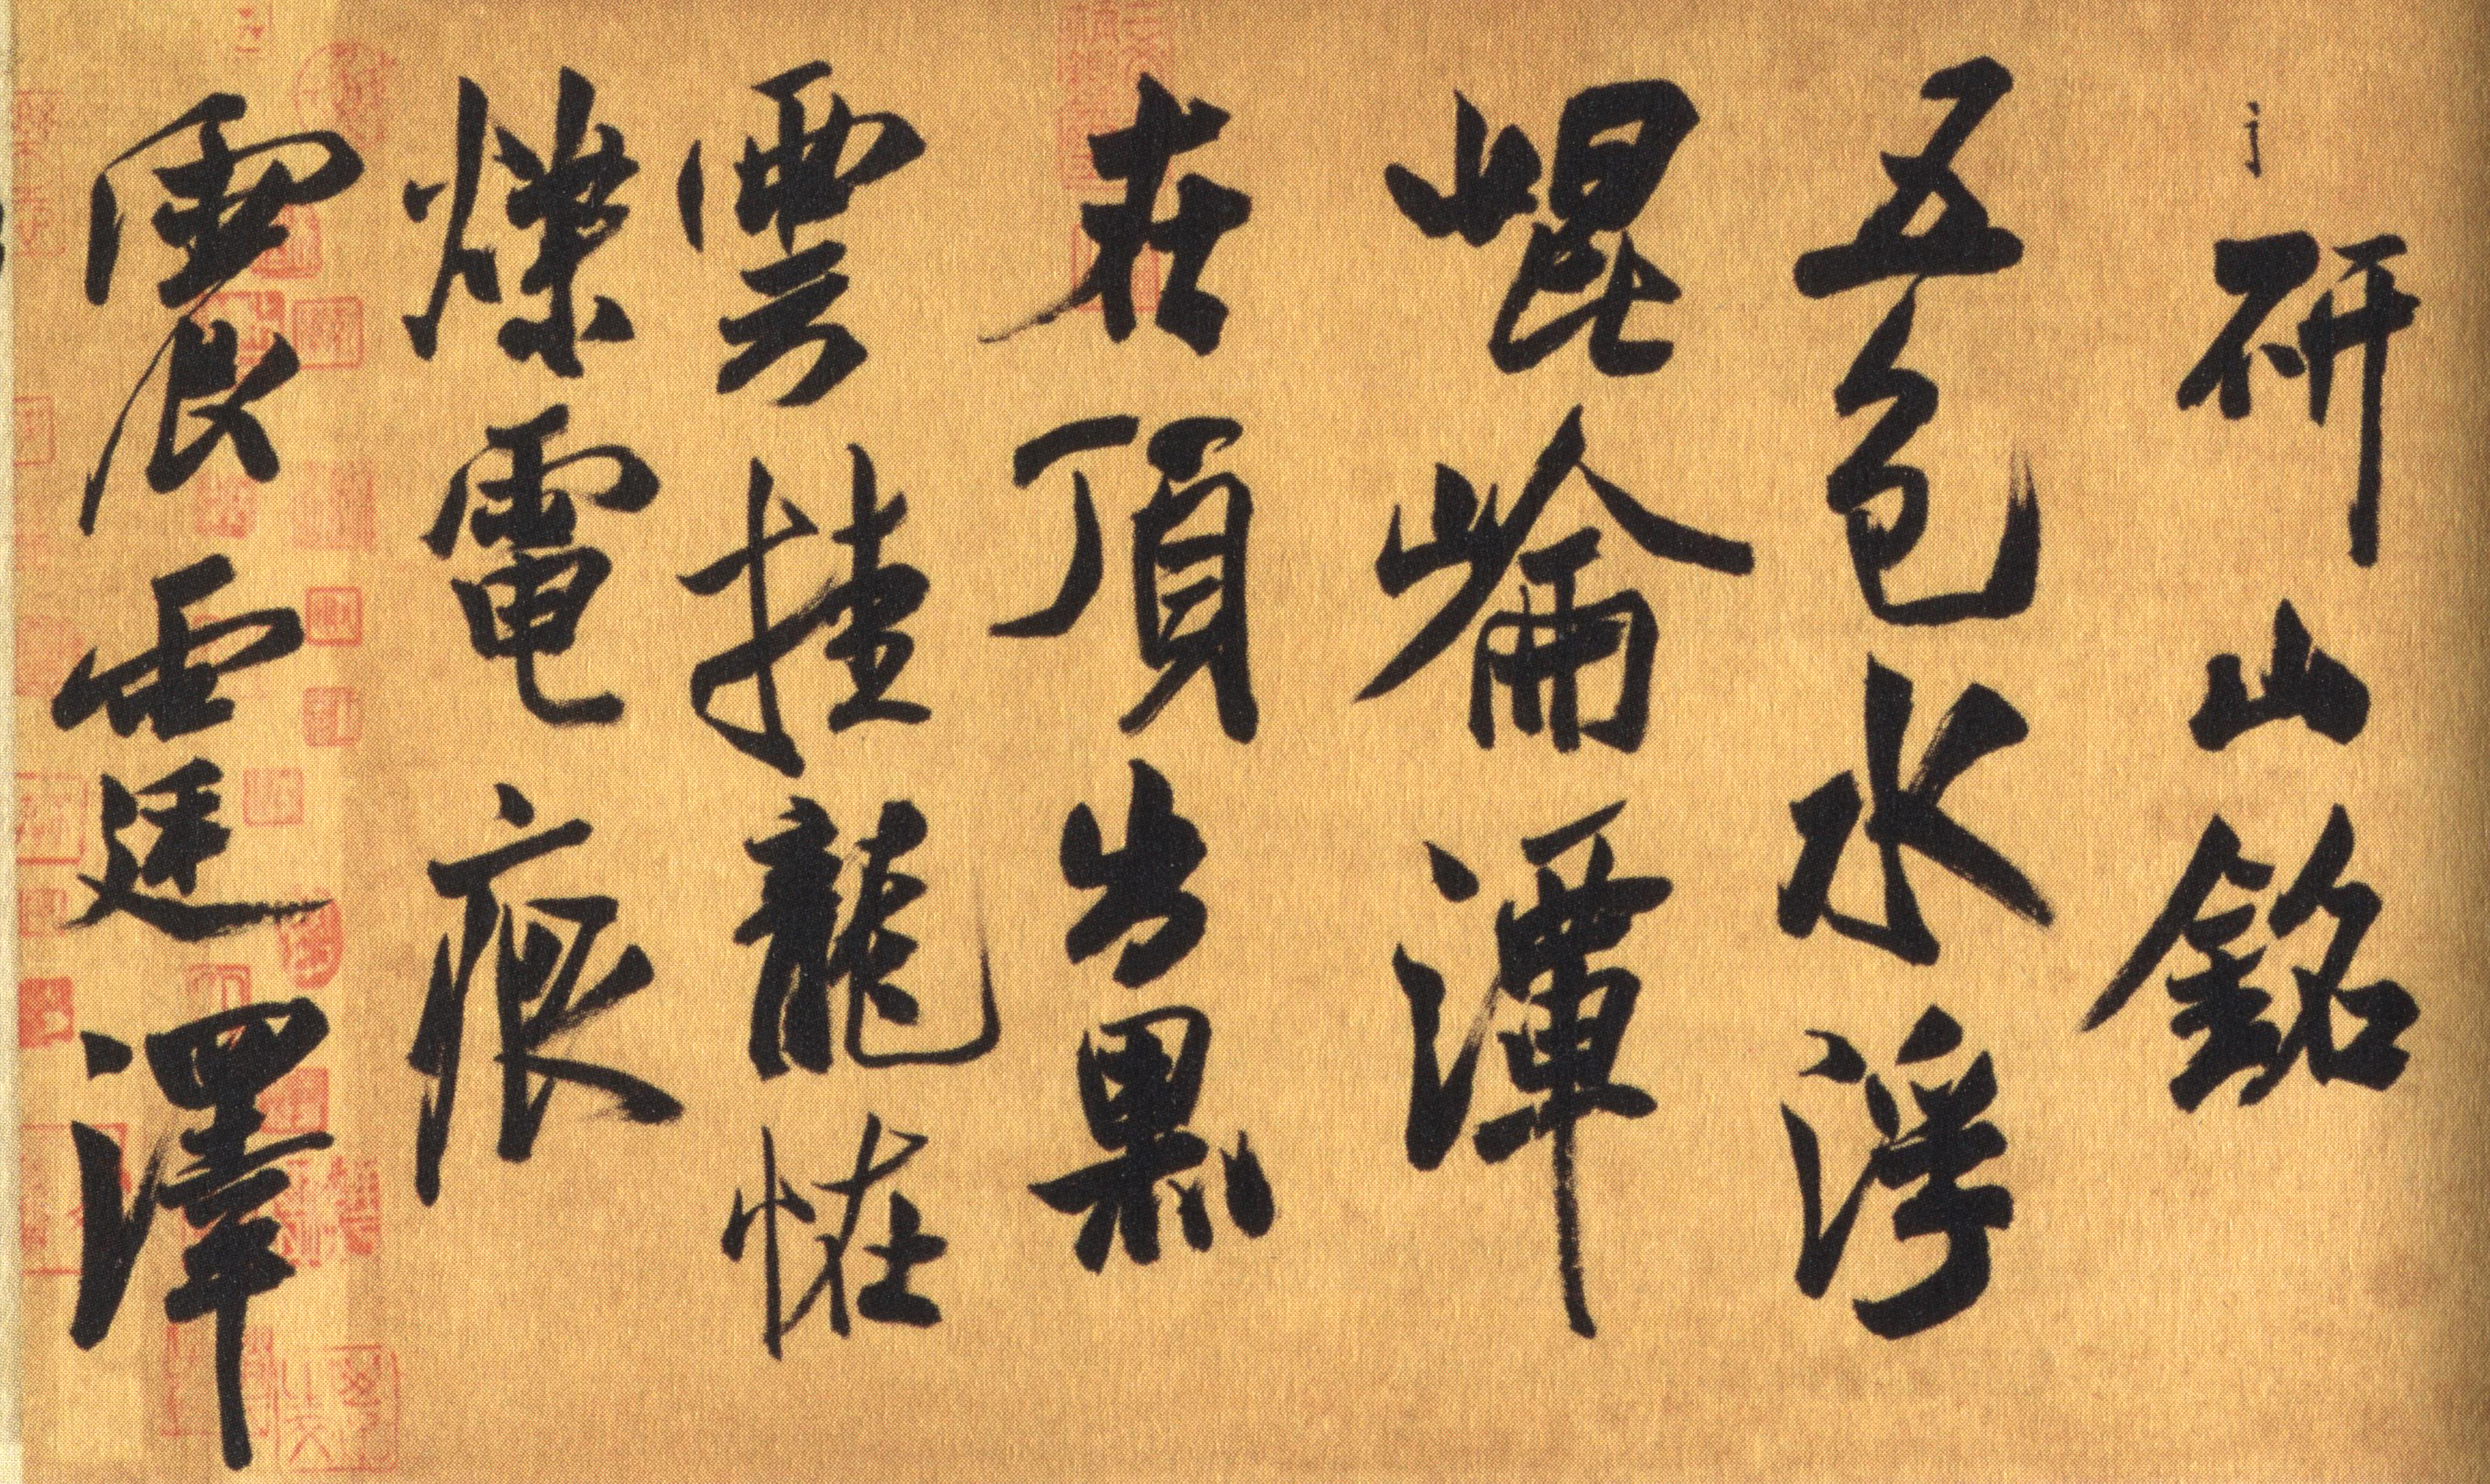 研山銘
五色水浮
崐崘潭
在頂出黑
雲挂龍怪
爍電痕
震霆澤